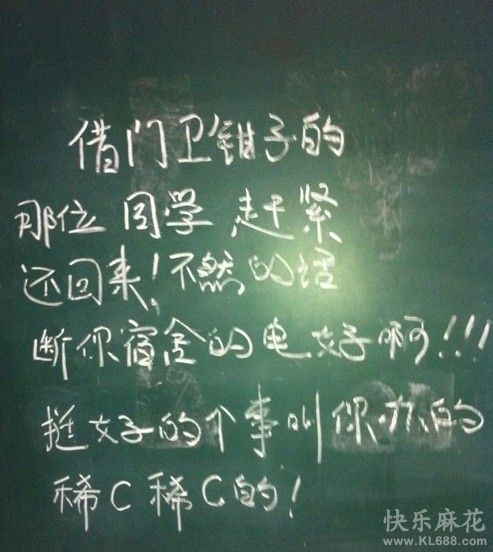 借门卫钳子的
那位同学赶紧
还回来!不然的话
断你宿舍的电好啊!!!
挺好的个事叫你办的
稀C稀C的!
快乐麻花
www.KL688.com